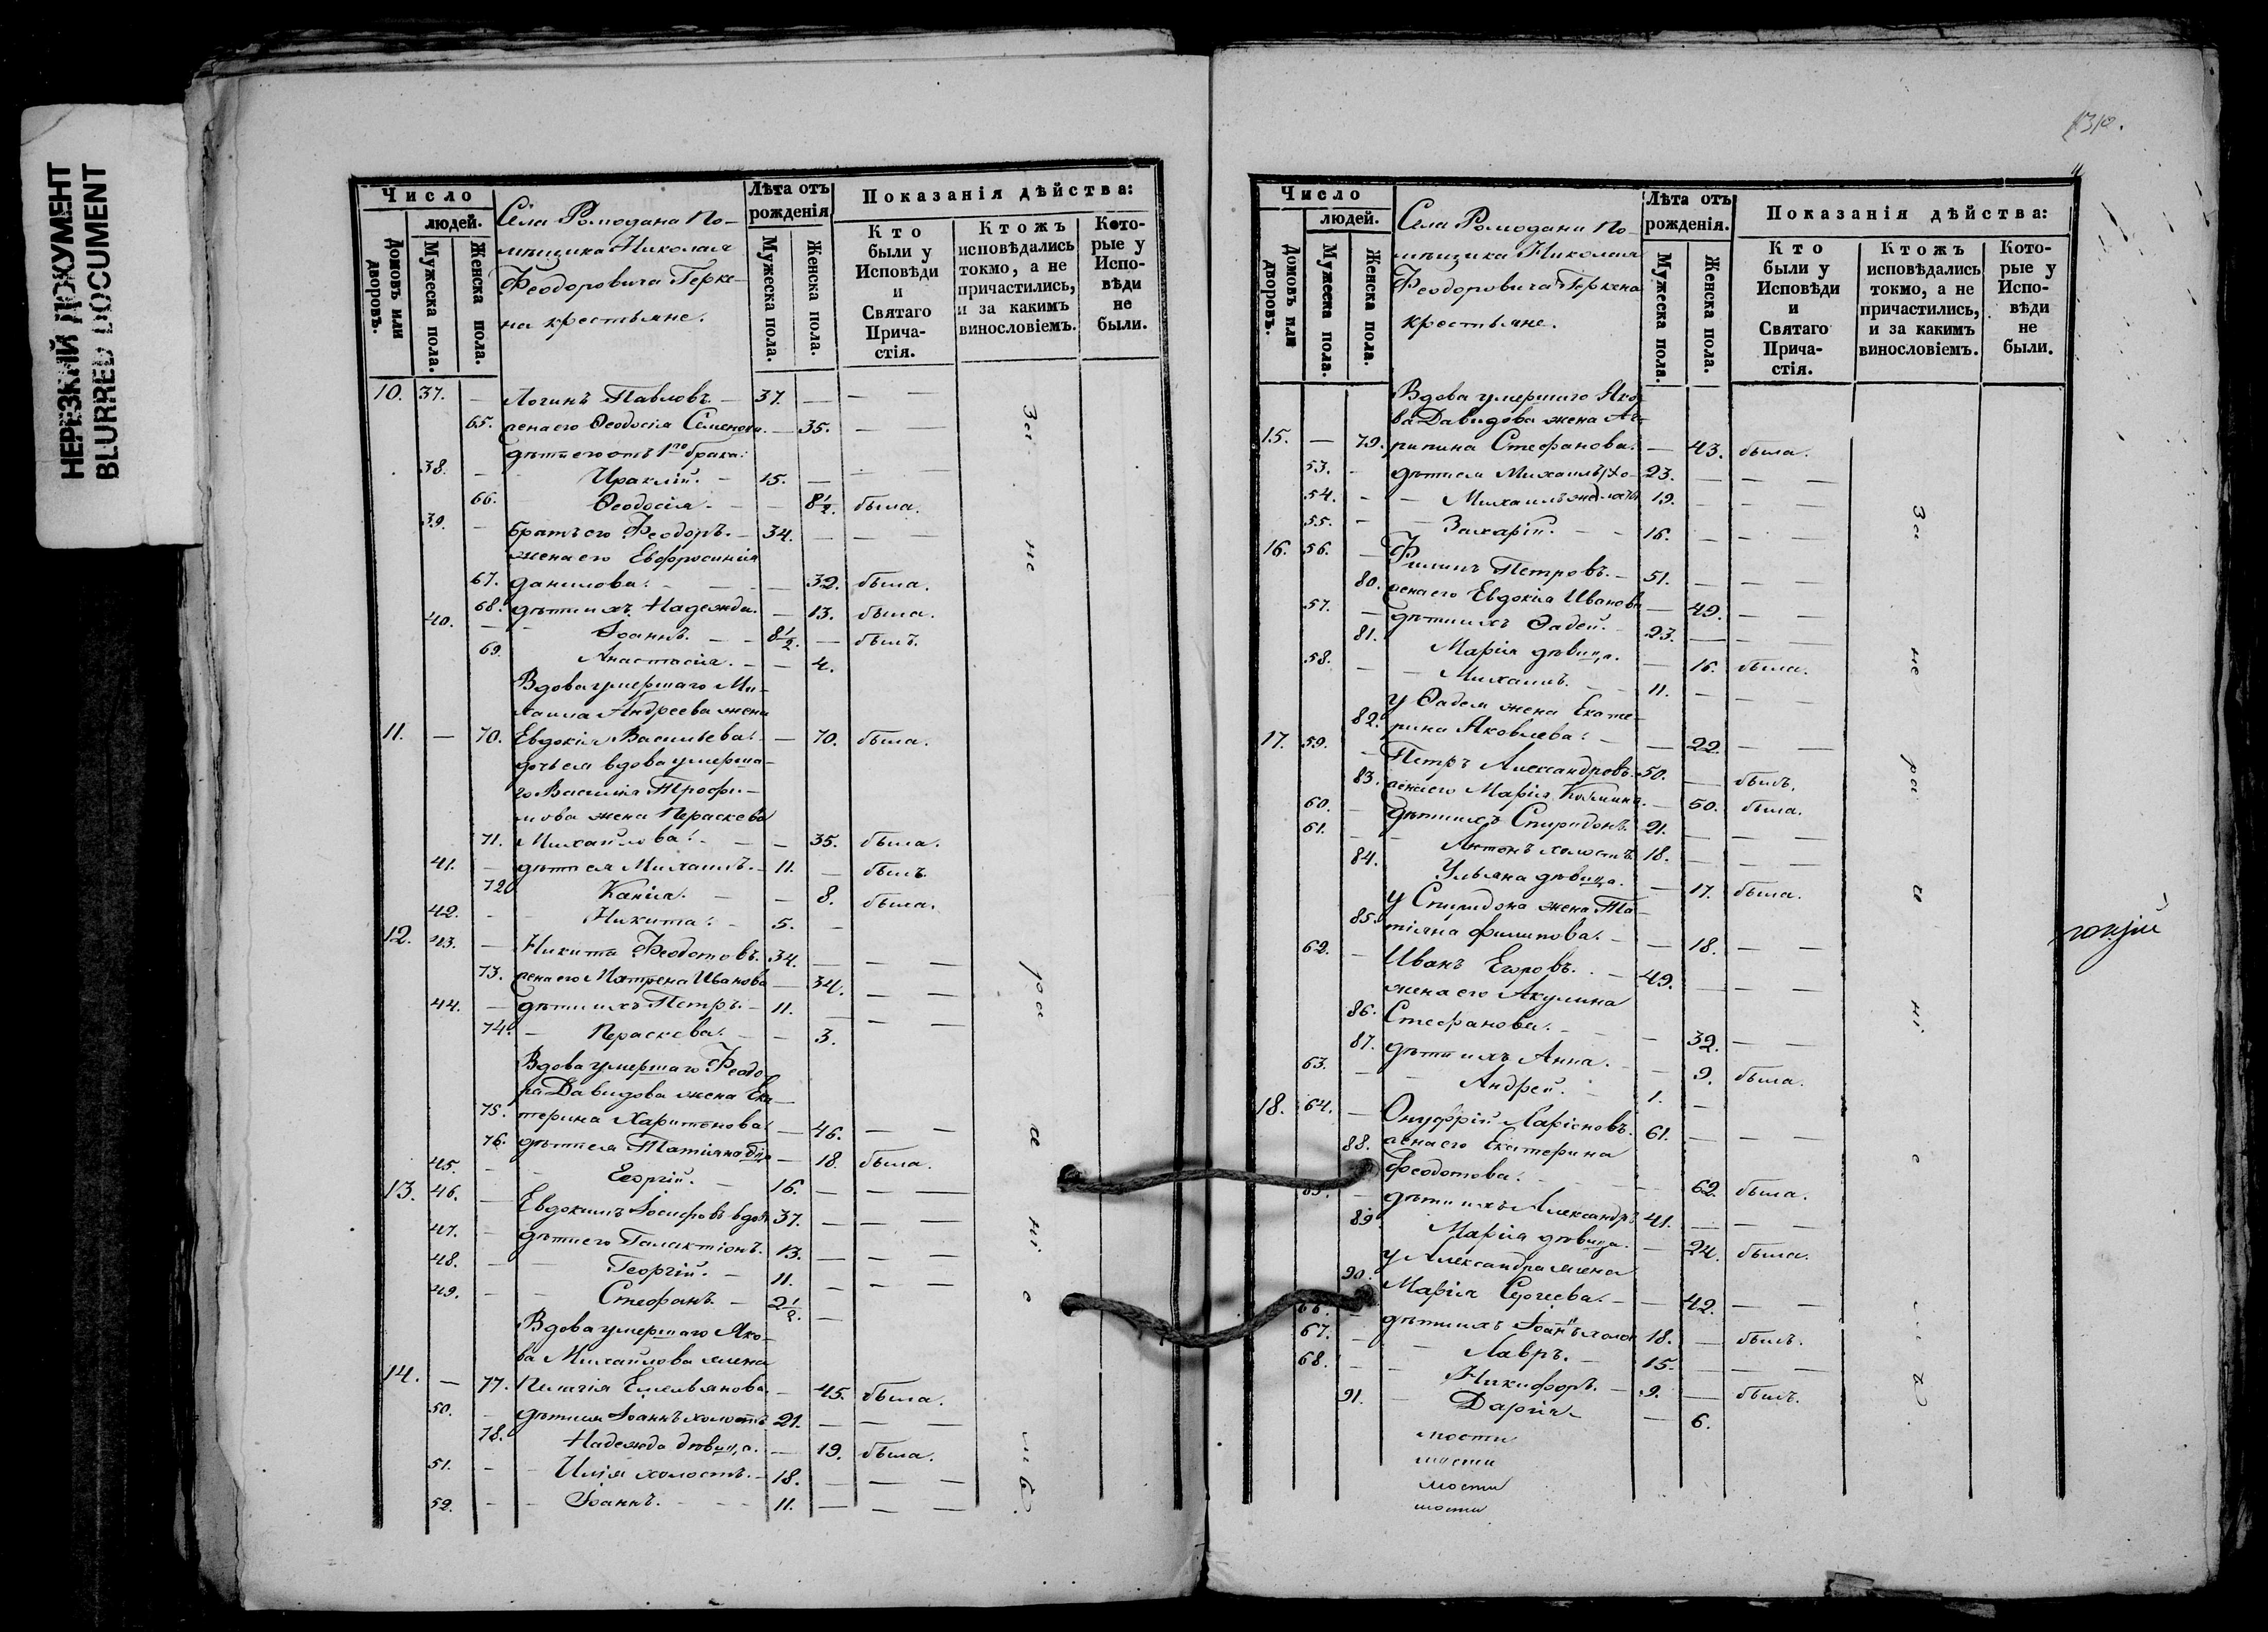 НЕРЕЗКИЙ ДОКУМЕНТ
BLURRED DOCUMENT
Число
людей.
Домовъ или дворовъ.
Мужеска пола.
Женска пола.
Села Ромодана По-
мѣщика Николая
Феодоровича Герке-
на крестьяне.
Лѣта отъ
рожденія
Мужеска пола.
Женска пола.
Показанія дѣйства:
Кто
были у
Исповѣди
и
Святаго
Прича-
стія.
Ктожъ
исповѣдались
токмо, а не
причастились,
и за какимъ
винословіемъ.
Кото-
рые у
Испо-
вѣди
не
были.
10. 37. — Логинъ Павловъ. — 37. — — —
65. жена его Ѳеодосія Семенова. — 35. — —
дѣти его отъ 1го брака:
38. — Ираклій. — 15. — — —
66. Ѳеодосія. — — 8½. была.
39. — братъ его Феодоръ. — 34. — — —
жена его Евфросинія
67. Данилова. — — 32. была.
68. дѣти ихъ Надежда. — 13. была.
40. — Іоаннъ. — 8½. — былъ.
69. Анастасія. — — 4.
Вдова умершаго Ми-
хаила Андреева жена
11. — 70. Евдокія Васильева. — 70. была.
дочь ея вдова умерша-
го Василія Трофи-
мова жена Параскева
71. Михайлова. — — 35. была.
41. — дѣти ея Михаилъ. — 11. — былъ
72. — 8. была.
42. — Никита. — 5. —
12. 43. — Никита Феодотовъ. 34. — — —
73. жена его Матрена Иванова — 34. — —
44. — дѣти ихъ Петръ. — 11. — — —
74. — Параскева. — — 3.
Вдова умершаго Феодо-
ра Давидова жена Ека-
75. терина Харитонова. — 46. — —
76. дѣти ея Татіяна — 18. была.
45. — Георгій. — 16. — — —
13. 46. — Евдокимъ Іосифовъ вдов 37. — — —
47. — дѣти его Галактіонъ. 13. — — —
48. — Георгій. — 11. — — —
49. — Стефанъ. — 2½. —
Вдова умершаго Яко-
ва Михайлова жена
14. — 77. Пелагія Емельянова. — 45. была.
50. — дѣти ея Іоаннъ холостъ 21. — — —
78. Надежда дѣвица. — 19. была.
51. — Илія холостъ. — 18. — — —
52. — Іоаннъ. — 11. — — —
За не ра д ні е мъ.
Число
людей.
Домовъ или дворовъ.
Мужеска пола.
Женска пола.
Села Ромодана По-
мѣщика Николая
Феодоровича Геркена
крестьяне.
Лѣта отъ
рожденія.
Мужеска пола.
Женска пола.
Показанія дѣйства:
Кто
были у
Исповѣди
и
Святаго
Прича-
стія.
Ктожъ
исповѣдались
токмо, а не
причастились,
и за какимъ
винословіемъ.
Кото-
рые у
Испо-
вѣди
не
были.
Вдова умершаго Яко-
ва Давидова жена Аг-
15. — 79. рипина Стефанова. — 43. была.
53. — дѣти ея Михаилъ хо- 23. — — —
54. — Михаилъ 19. — — —
55. — Захарій. — 16. — — —
16. 56. — Филипъ Петровъ. — 51. — — —
80. жена его Евдокія Иванова — 49. — —
57. — дѣти ихъ Ѳадей. 23. — —
81. Марія дѣвица. — 16. была.
58. — Михаилъ. — 11. — — —
у Ѳадея жена Екате-
82. рина Яковлева. — — 22. — —
17. 59. — Петръ Александровъ. 50. — былъ.
83. жена его Марія — 50. была.
60. — дѣти ихъ Спиридонъ. 21. — — —
61. — Антонъ холостъ. 18. — — —
84. Ульяна дѣвица. — 17. была.
у Спиридона жена Та-
85. тіяна Филипова. — — 18. — —
62. — Иванъ Егоровъ. — 49. — — —
жена его Акулина
86. Стефанова. — — 32. — —
87. дѣти ихъ Анна. — — 9. была.
63. — Андрей. — 1. —
18. 64. — Онуфрій Ларіоновъ. 61. — — —
88. жена его Екатерина
Феодотова. — — 62. была.
65. — дѣти ихъ Александръ 41. — — —
89. Марія дѣвица. — 24. была.
у Александра жена
90. Марія Сергеева. — — 42. — —
66. — дѣти ихъ Іоаннъ холос 18. — былъ.
67. — Лавръ. — 15. — — —
68. — Никифоръ. — 9. — былъ.
91. — Дарія. — 6.
За не ра д ні е мъ.